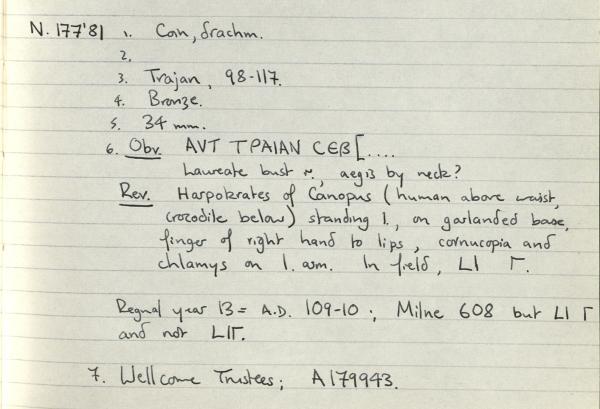 N. 177'81 1. Coin, drachm.
2.
3. Trajan, 98-117.
4. Bronze.
5. 34 mm.
6. Obv. AVT TPAIAN CEB[....
Laureate bust r., aegis by neck?
Rev. Harpokrates of Canopus (human above waist,
crocodile below) standing l., on garlanded base,
finger of right hand to lips, cornucopia and
chlamys on l. arm. In field, LI Γ.
Regnal year 13 = A.D. 109-10; Milne 608 but LI Γ
and not LIΓ.
7. Wellcome Trustees; A179943.